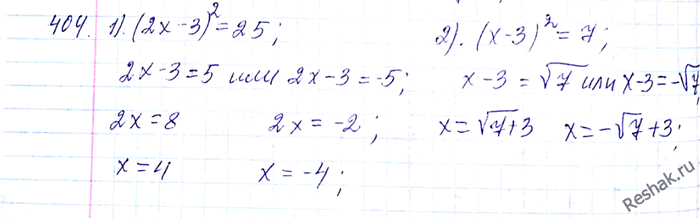 404. 1). (2x-3)²=25; 2). (x-3)²=7;
2x-3=5 или 2x-3=-5; x-3=√7 или x-3=-√7
2x=8 2x=-2; x=√7+3 x=-√7+3;
x=4 x=-4;
Reshak.ru